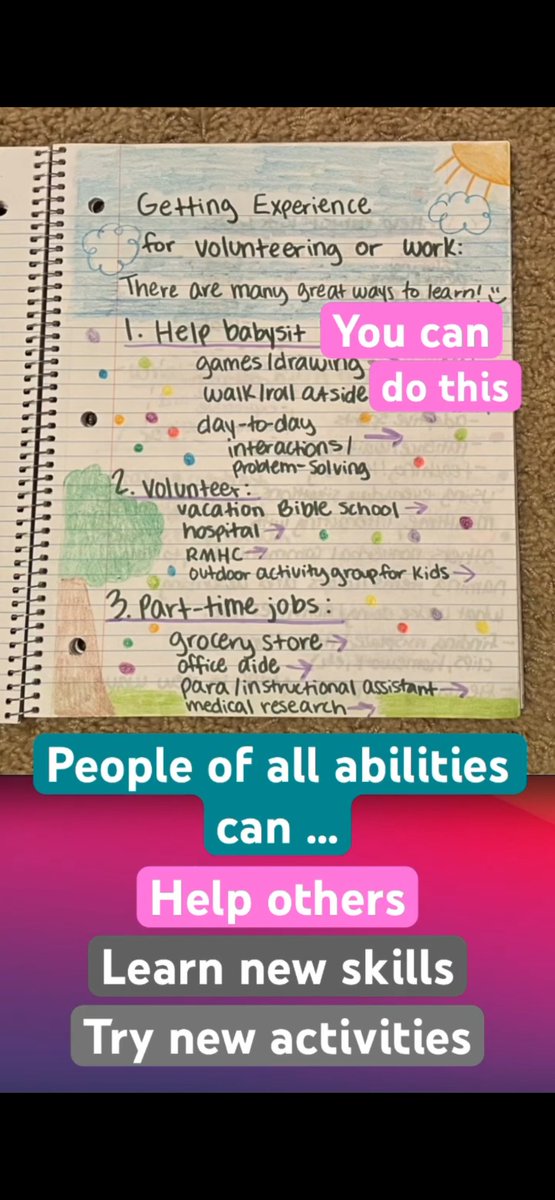 Getting Experience
for volunteering or work:
There are many great ways to learn!
1. Help babysit
You can
games/drawing
do this
walk/roll outside
day-to-day
interactions/
problem-solving
2. Volunteer:
vacation Bible school →
hospital →
RMHC →
outdoor activity group for kids →
3. Part-time jobs:
grocery store →
office aide →
para/instructional assistant →
medical research →
People of all abilities
can ...
Help others
Learn new skills
Try new activities